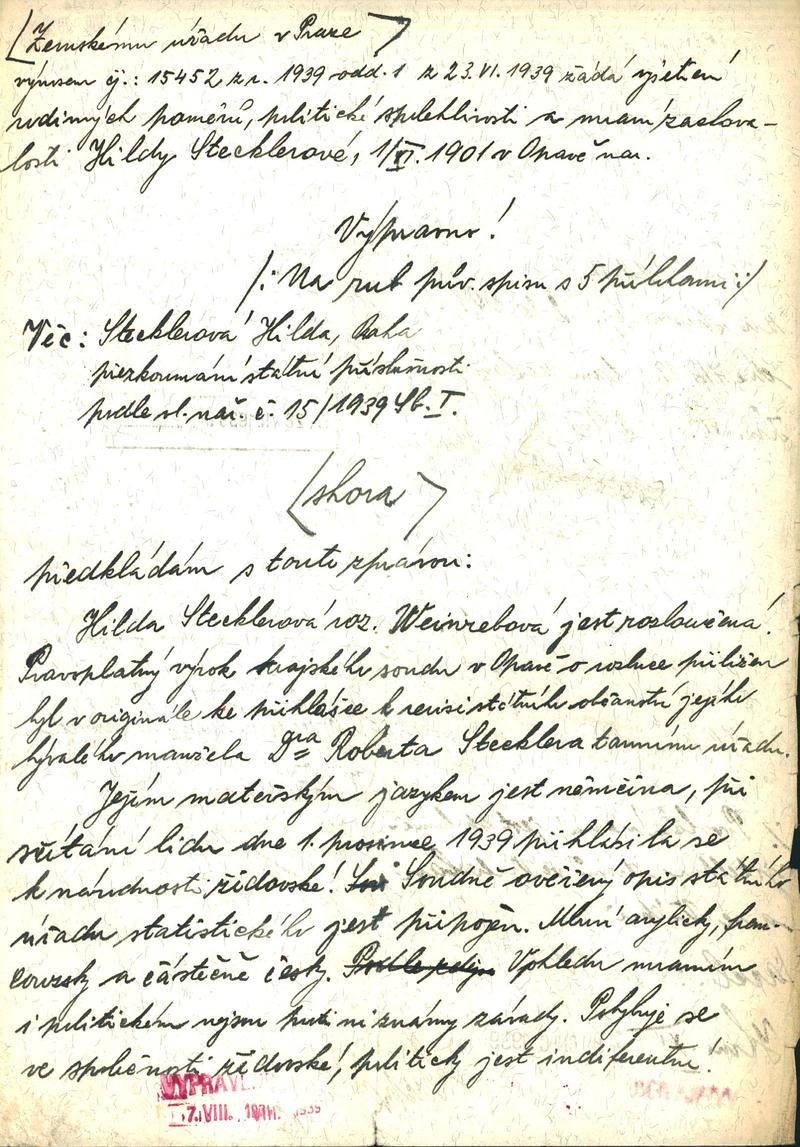 Zemskému úřadu v Praze
výnosem čj.: 15452 z r. 1939 odd. 1 z 23.VI.1939 žádá vyšetření
rodinných poměrů, politické spolehlivosti a mravní zachova-
losti Hildy Stecklerové, 1/VI. 1901 v Opavě nar.
Výpravno!
/: Na rub pův. spisu s 5 přílohami :/
Věc: Stecklerová Hilda, Praha
přezkoumání státní příslušnosti
podle vl. nař. č. 15/1939 Sb. I.
shora
předkládám s touto zprávou:
Hilda Stecklerová roz. Weinrebová jest rozloučená.
Pravoplatný výrok krajského soudu v Opavě o rozluce přiložen
byl v originále ke přihlášce k revisi státního občanství jejího
bývalého manžela Dra Roberta Stecklera tamnímu úřadu.
Jejím mateřským jazykem jest němčina, při
sčítání lidu dne 1. prosince 1939 přihlásila se
k národnosti židovské. Soudně ověřený opis státního
úřadu statistického jest připojen. Mluví anglicky, fran-
couzsky a částečně česky. Vohledu mravním
i politickém nejsou proti ní známy závady. Pohybuje se
ve společnosti židovské, politicky jest indiferentní.
VYPRAV.
7.VIII. 1939